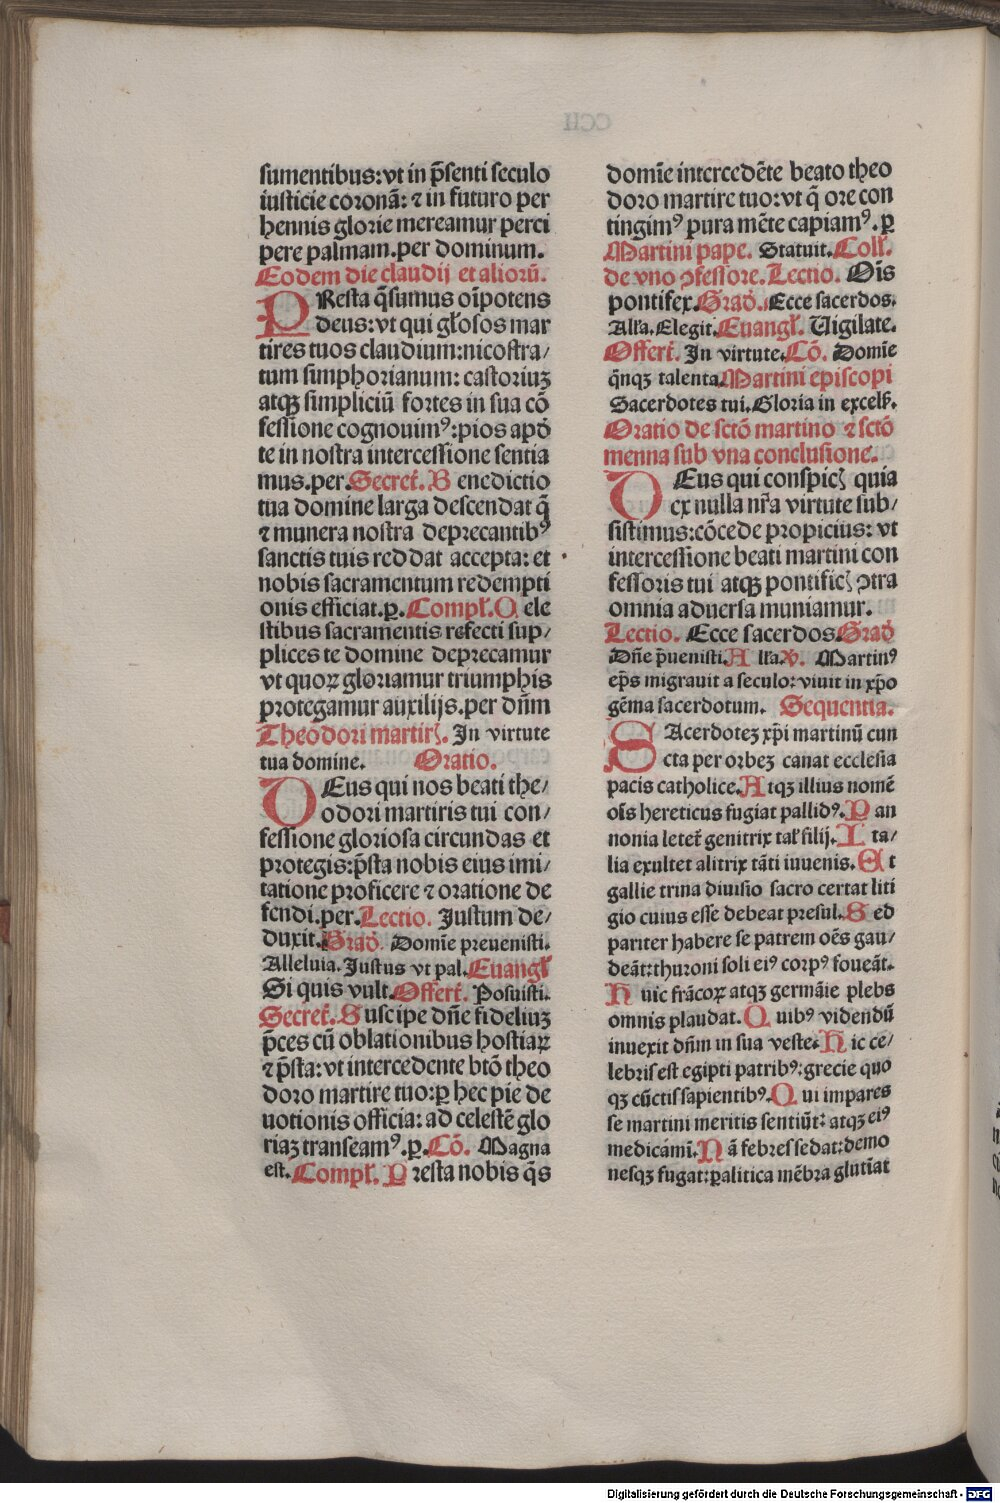 sumentibus: vt in p̃senti seculo
iusticie coronã: ⁊ in futuro per
hennis glorie mereamur perci
pere palmam. per dominum.
Eodem die claudij et aliorũ.
PResta q̃sumus oĩpotens
deus: vt qui gl̃osos mar
tires tuos claudium: nicostra/
tum simphorianum: castoriuꝫ
atqꝫ simpliciũ fortes in sua cõ
fessione cognouimꝰ: pios apõ
te in nostra intercessione sentia
mus. per. Secret̃. Benedictio
tua domine larga descendat q̃
⁊ munera nostra deprecantibꝰ
sanctis tuis reddat accepta: et
nobis sacramentum redempti
onis efficiat. p̱. Compl̃. Cele
stibus sacramentis refecti sup/
plices te domine deprecamur
vt quoꝝ gloriamur triumphis
protegamur auxilijs. per dñm
Theodori martirꝭ. In virtute
tua domine. Oratio.
DEus qui nos beati the/
odori martiris tui con/
fessione gloriosa circundas et
protegis: p̃sta nobis eius imi/
tatione proficere ⁊ oratione de
fendi. per. Lectio. Justum de/
duxit. Grad̃. Domĩe preuenisti.
Alleluia. Justus vt pal. Euangl̃
Si quis vult. Offert̃. Posuisti.
Secret̃. Suscipe dñe fideliuꝫ
p̃ces cũ oblationibus hostiaꝝ
⁊ p̃sta: vt intercedente btõ theo
doro martire tuo: ꝑ hec pie de
uotionis officia: ad celestẽ glo
riaꝫ transeamꝰ. ꝑ. Cõ. Magna
est. Compl̃. Presta nobis q̃s
domĩe intercedẽte beato theo
doro martire tuo: vt q̃ ore con
tingimꝰ pura mẽte capiamꝰ. ꝑ
Martini pape. Statuit. Coll̃.
de vno ꝯfessore. Lectio. Oĩs
pontifex. Grad̃. Ecce sacerdos.
Alľa. Elegit. Euangl̃. Uigilate.
Offert̃. In virtute. Cõ. Domĩe
q̃nqꝫ talenta Martini episcopi
Sacerdotes tui. Gloria in excelꝭ.
Oratio de sctõ martino ⁊ sctõ
menna sub vna conclusione.
DEus qui conspicꝭ quia
ex nulla nr̃a virtute sub/
sistimus: cõcede propicius: vt
intercessione beati martini con
fessoris tui atqꝫ pontificꝭ ꝯtra
omnia aduersa muniamur.
Lectio. Ecce sacerdos Grad̃
Dñe p̃uenisti. Alľa. v̓. Martinꝰ
ep̃s migrauit a seculo: viuit in xp̃o
gẽma sacerdotum. Sequentia.
SAcerdoteꝫ xp̃i martinũ cun
cta per orbeꝫ canat ecclesia
pacis catholice. Atqꝫ illius nomẽ
oĩs hereticus fugiat pallidꝰ. Pan
nonia letet̃ genitrix tal̃ filij. Ita/
lia exultet alitrix tãti iuuenis. Et
gallie trina diuisio sacro certat liti
gio cuius esse debeat presul. Sed
pariter habere se patrem oẽs gau/
deãt: thuroni soli eiꝰ corpꝰ foueãt.
Huic frãcoꝝ atqꝫ germãie plebs
omnis plaudat. Quibꝰ videndũ
inuexit dñm in sua veste. Hic ce/
lebris est egipti patribꝰ: grecie quo
qꝫ cũctis sapientibꝰ. Qui impares
se martini meritis sentiũt: atqꝫ eiꝰ
medicámĩ. Nã febres sedat: demo
nesqꝫ fugat: ꝑalitica mẽbra glutĩat